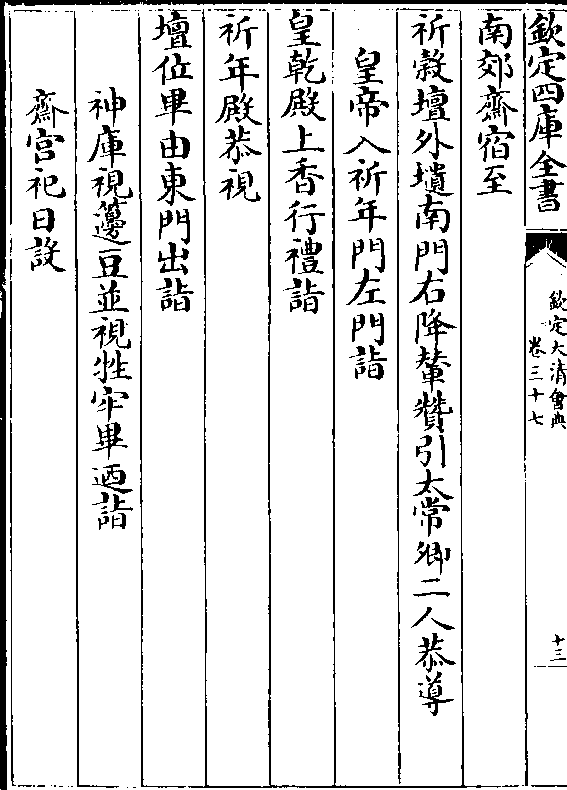 欽定四庫全書
欽定大清會典
卷三十七
十三
南郊齋宿至
祈穀壇外壝南門右降輦贊引太常卿二人恭導
皇帝入祈年門左門詣
皇乾殿上香行禮詣
祈年殿恭視
壇位畢由東門出詣
神庫視籩豆並視牲牢畢迺詣
齋宮祀日設